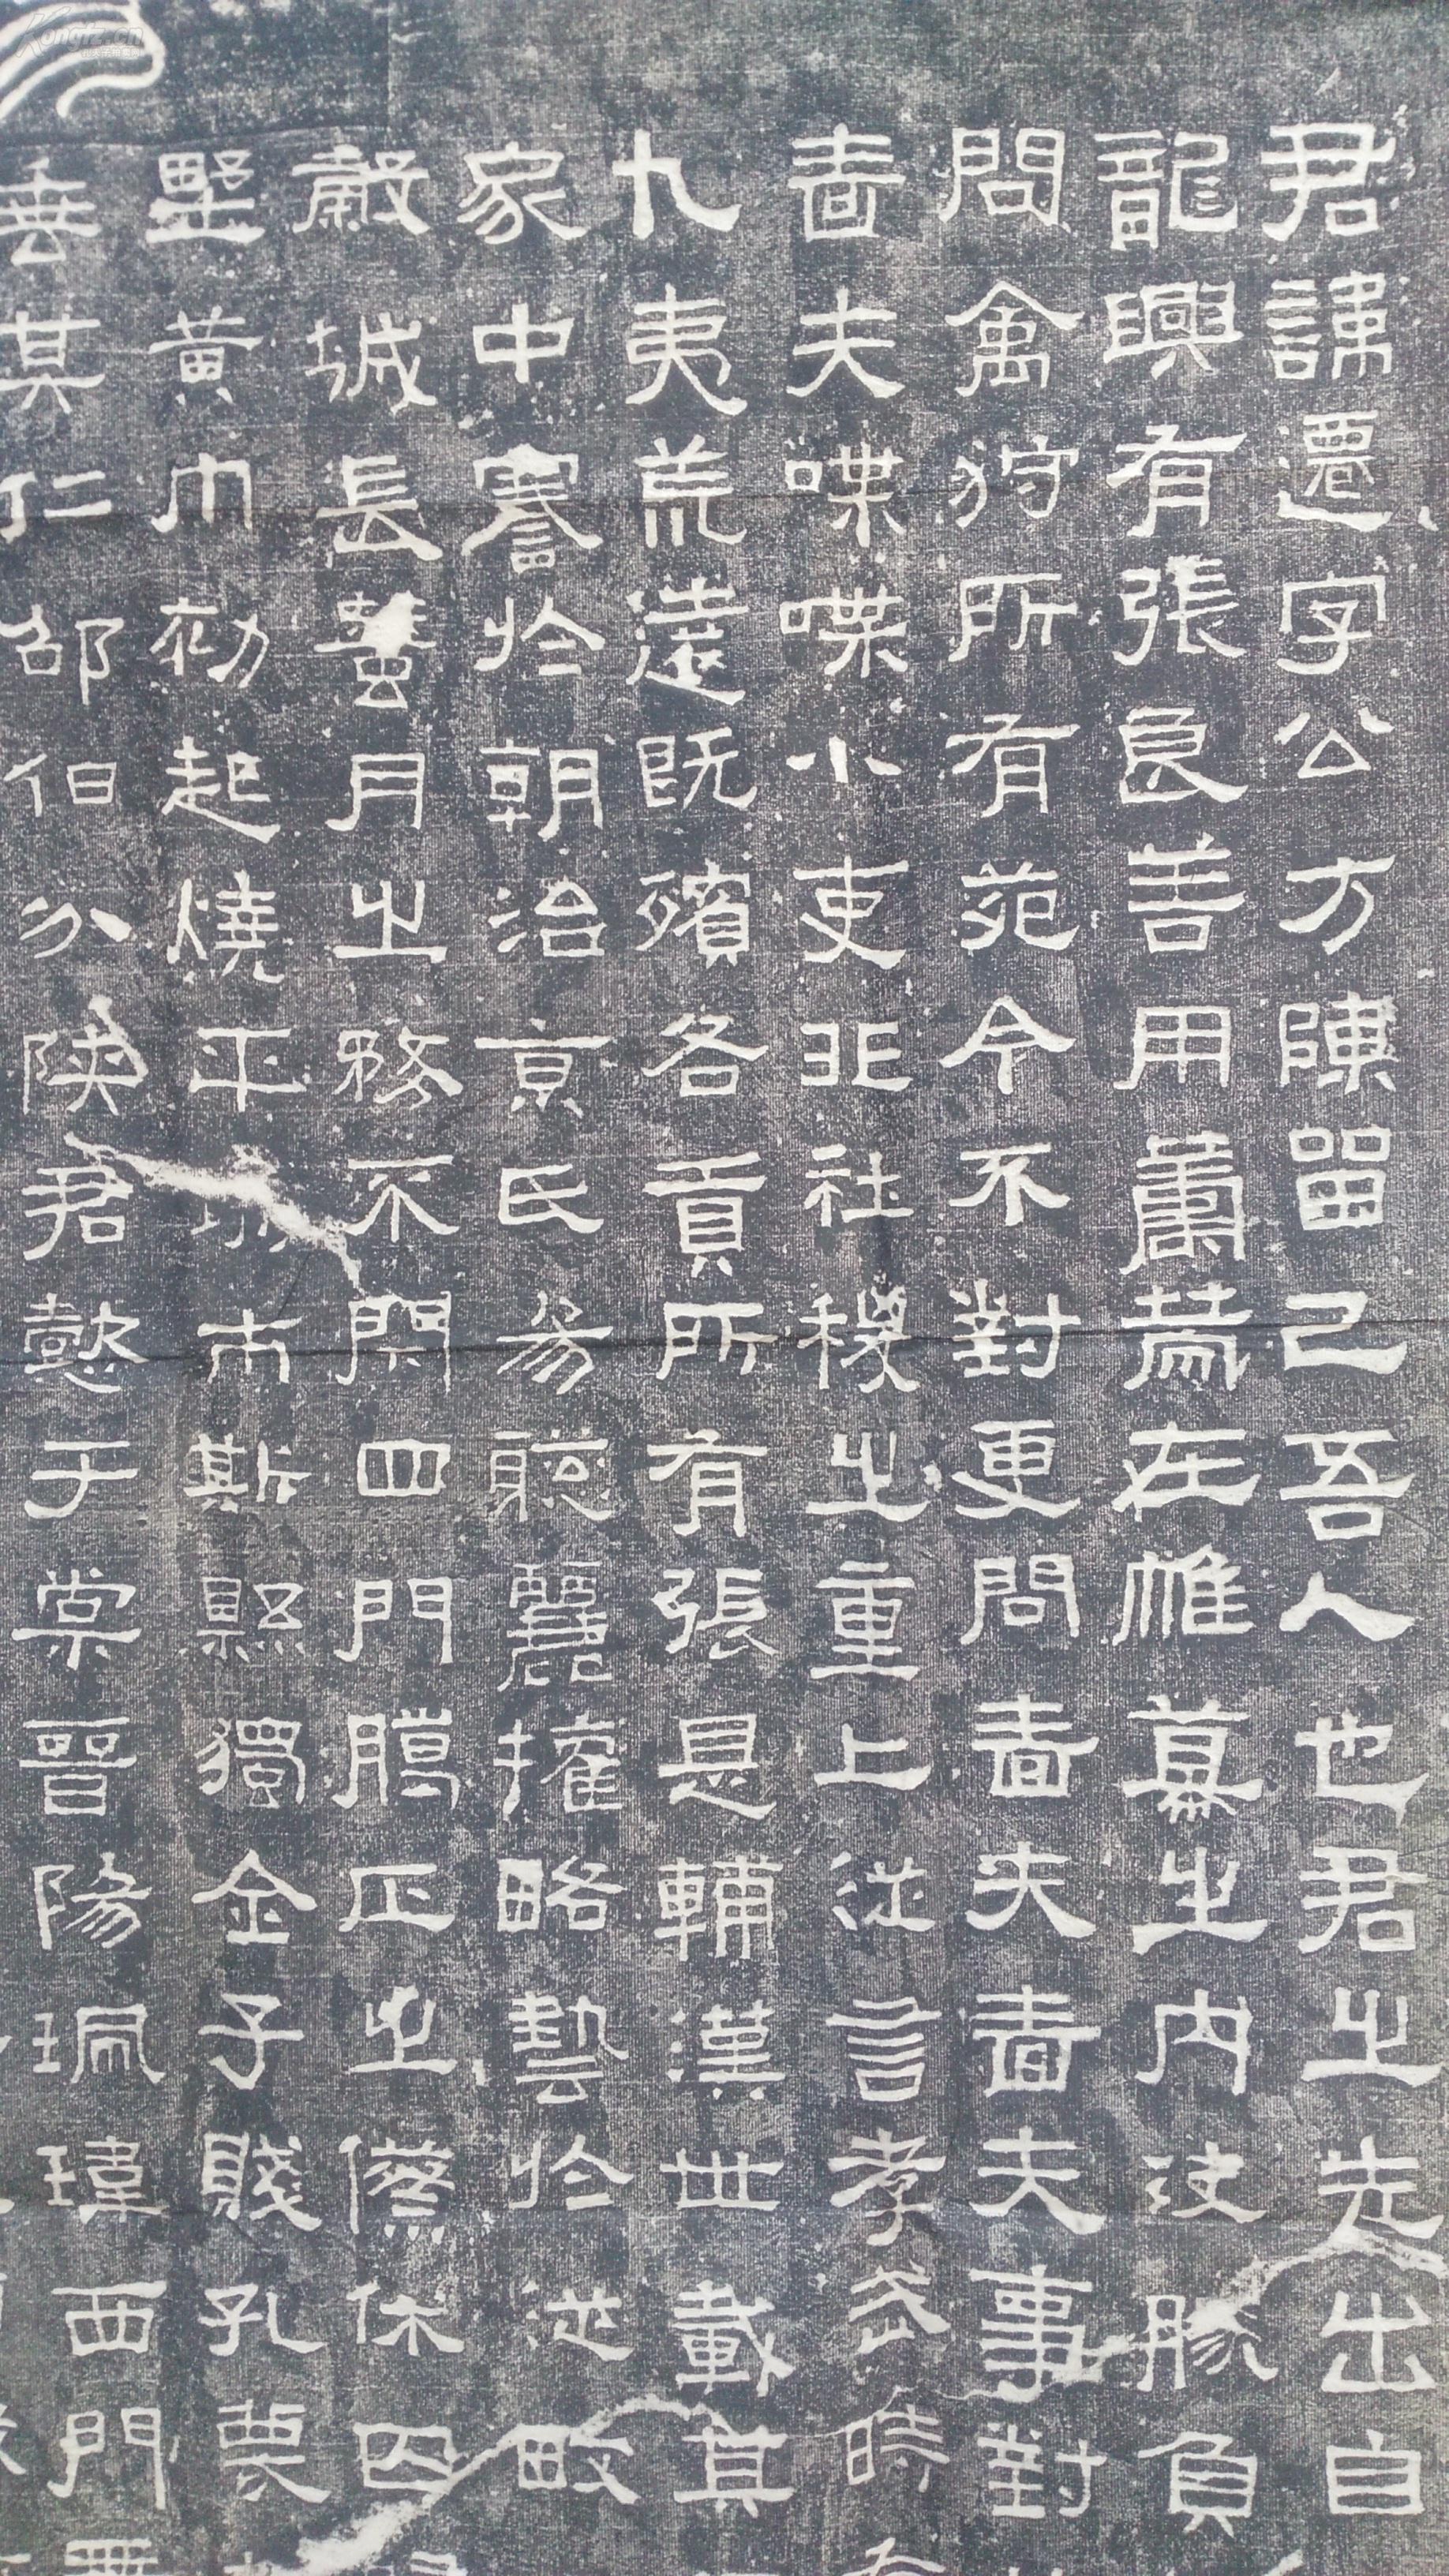 君諱遷字公方陳留己吾人也君之先出自
龍興有張良善用籌策在帷幕之內決勝負
問禽狩所有苑令不對更問嗇夫嗇夫事對
嗇夫喋喋小吏非社稷之重上從言孝武時
九夷荒遠既殯各貢所有張是輔漢世載其
家中謇於朝治京氏易聰麗權略藝於從畋
穀城長蠶月之務不閉四門臘正之僚休囚
野黃巾初起燒平城市斯縣獨全子賤孔蔑
垂其仁邵伯分陝君懿于棠晉陽珮瑋西門
Kongfz.cn